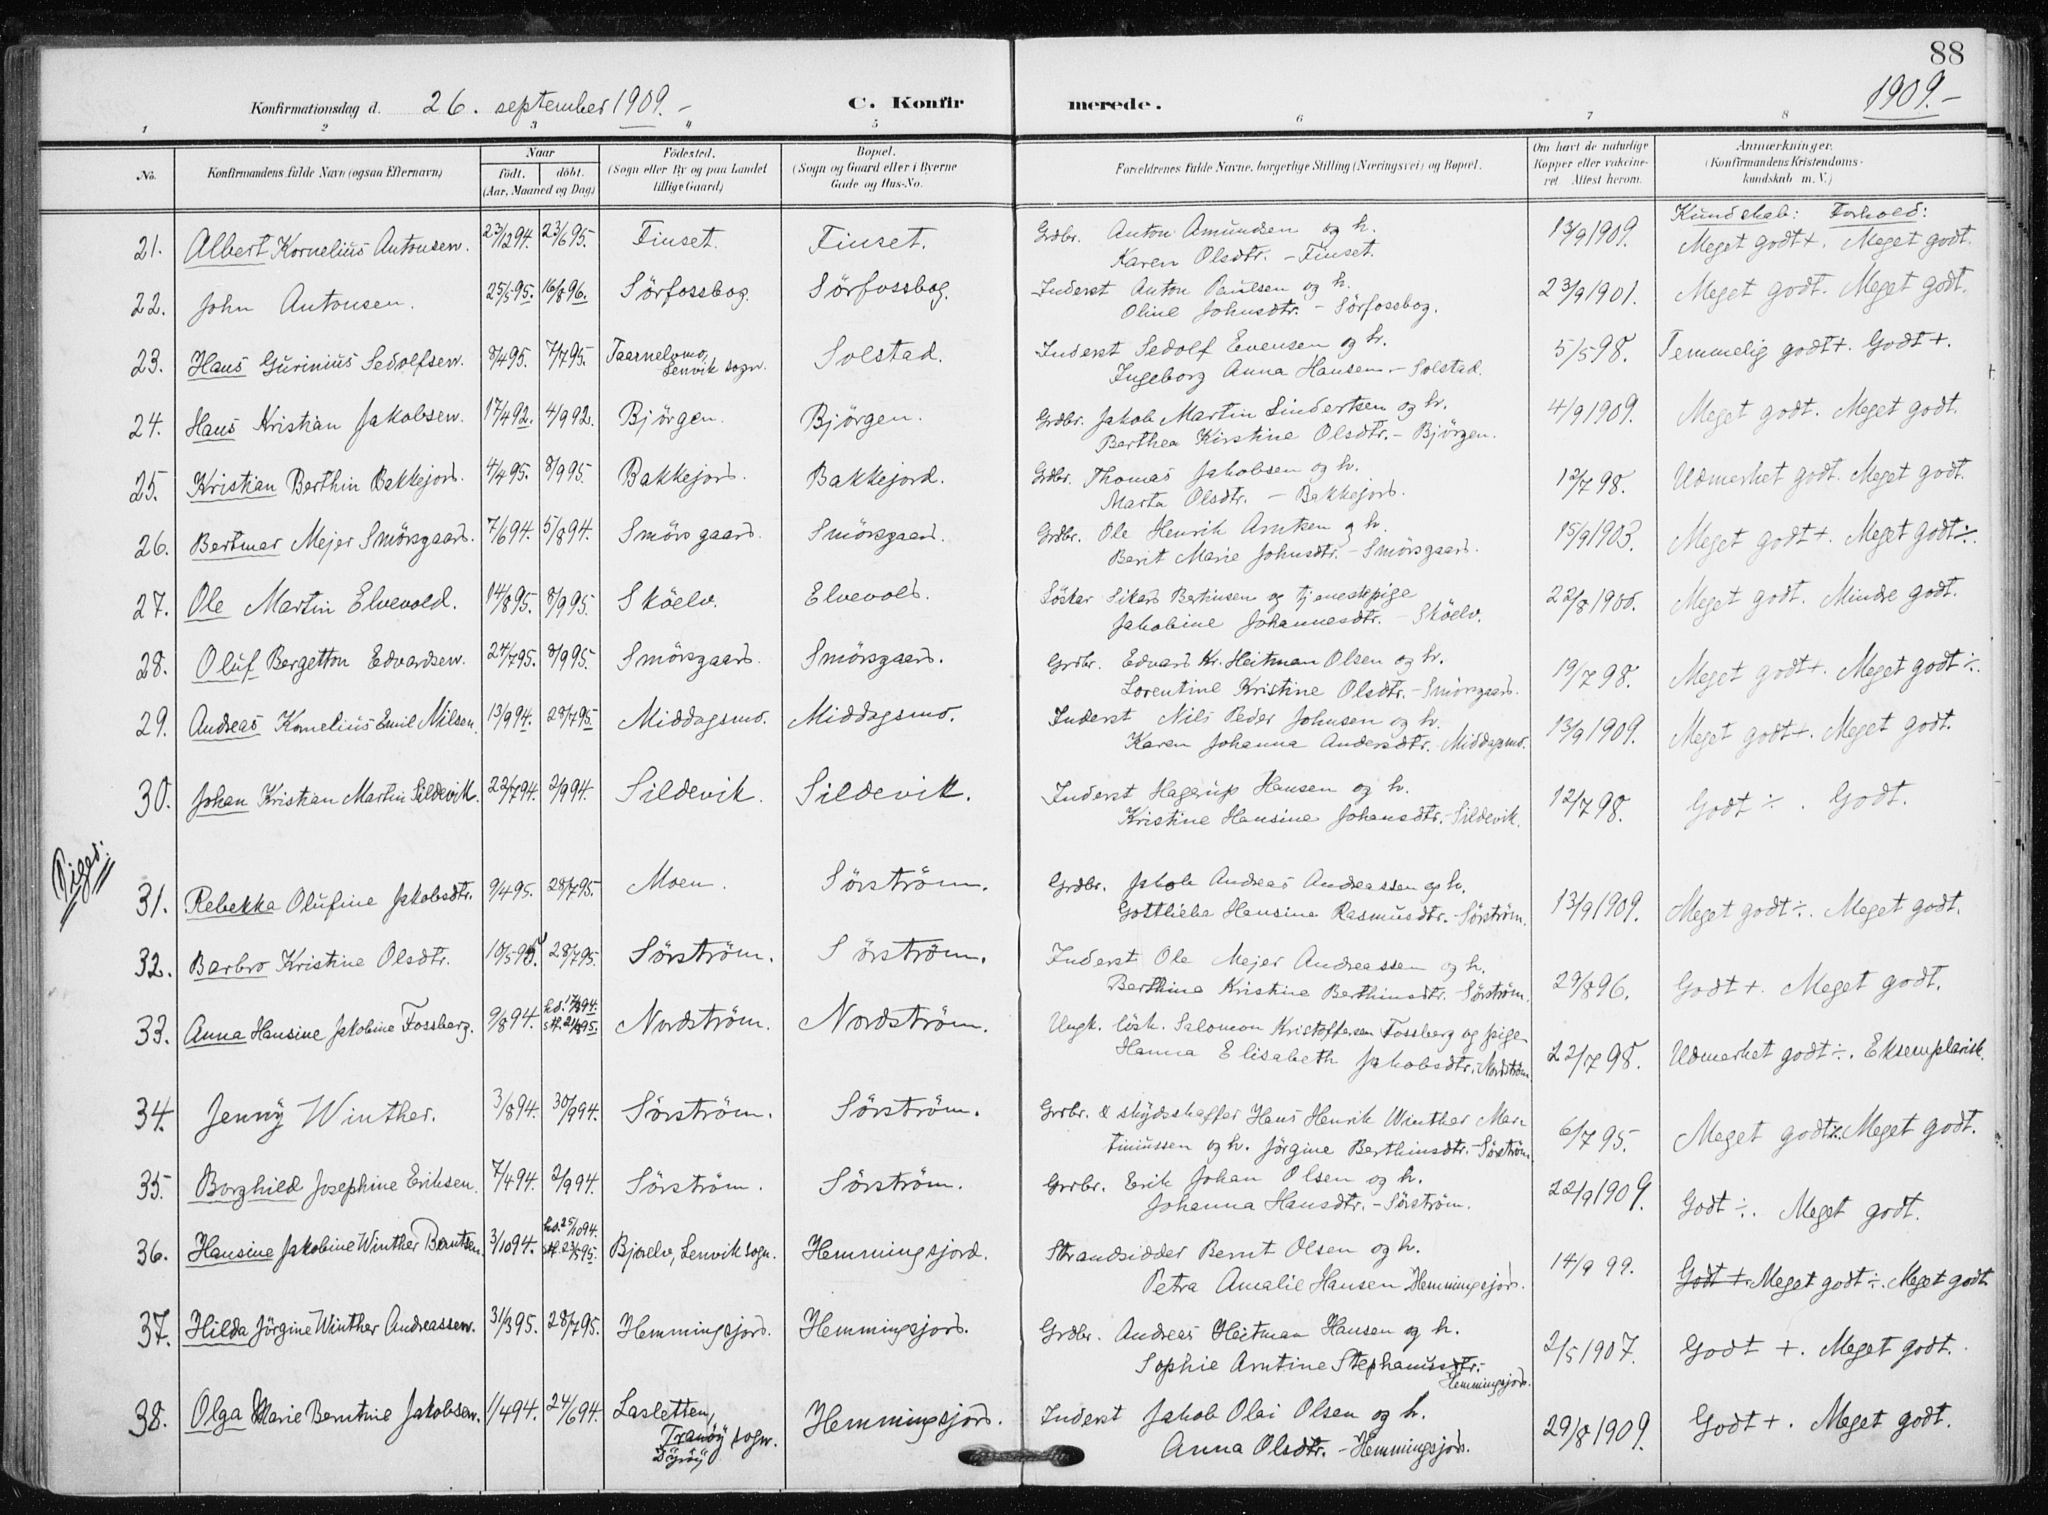 88
Konfirmationsdag d. 26. september 1909.- C. Konfirmerede. 1909.-
1 2 3 4 5 6 7 8
No. Konfirmandens fulde Navn (ogsaa Efternavn) Naar født. døbt. (Aar, Maaned og Dag) Fødested. (Sogn eller By og paa Landet tillige Gaard) Bopæl. (Sogn og Gaard eller i Byerne Gade og Hus-No. Forældrenes fulde Navne, borgerlige Stilling (Næringsvei) og Bopæl. Om havt de naturlige Kopper eller vakcineret Attest herom. Anmærkninger. (Konfirmandens Kristendomskundskab m. V.)
Kundskab: Forhold:
21. Albert Kornelius Antonsen. 23/1294. 23/695. Finset. Finset. Grdbr. Anton Amundsen og h. 13/9 1909. Meget godt +. Meget godt.
Karen Olsdtr. - Finset.
22. John Antonsen. 25/595. 16/896. Sörfossbog. Sörfossbog. Inderst Anton Paulsen og h. 23/9 1901. Meget godt. Meget godt.
Oline Johnsdtr. - Sörfossbog.
23. Hans Gurinius Sedolfsen. 8/495. 7/795. Taarnelvmo, Lenvik sogn. Solstad. Inderst Sedolf Evensen og h. 5/5 98. Temmelig godt +. Godt +.
Ingeborg Anna Hansen - Solstad.
24. Hans Kristian Jakobsen. 17/492. 4/992. Bjørgen. Bjørgen. Grdbr. Jakob Martin Sindertsen og h. 4/9 1909. Meget godt. Meget godt.
Berthea Kirstine Olsdtr. - Bjørgen.
25. Kristian Berthin Bakkejord. 4/495. 8/995. Bakkejord. Bakkejord. Grdbr. Thomas Jakobsen og h. 12/7 98. Udmerket godt. Meget godt.
Marta Olsdtr. - Bakkejord.
26. Bertmer Mejer Smörsgaard. 7/694. 5/894. Smörsgaard. Smörsgaard. Grdbr. Ole Henrik Arntsen og h. 15/9 1903. Meget godt +. Meget godt ÷.
Berit Marie Johnsdtr. - Smörsgaard.
27. Ole Martin Elvevold. 14/895. 8/995. Sköelv. Elvevold. Löskar Sikard Bertinsen og tjenestepige 22/8 1900. Meget godt. Mindre godt.
Jakobine Johannesdtr. - Sköelv.
28. Oluf Bergetton Edvardsen. 24/795. 8/995. Smörsgaard. Smörsgaard. Grdbr. Edvard Kr. Heitman Olsen og h. 19/7 98. Meget godt +. Meget godt ÷.
Lorentine Kristine Olsdtr. - Smörsgaard.
29. Andreas Kornelius Emil Nilsen. 13/994. 28/795. Middagsmo. Middagsmo. Inderst Nils Peder Johnsen og h. 13/9 1909. Meget godt +. Meget godt.
Karen Johanna Andersdtr. - Middagsmo.
30. Johan Kristian Martin Sildevik. 22/794. 2/994. Sildevik. Sildevik. Inderst Hagerup Hansen og h. 12/7 98. Godt ÷. Godt.
Kristine Hansine Johansdtr. - Sildevik.
Piger:
31. Rebekka Olufine Jakobsdtr. 9/495. 28/795. Moen. Sörström. Grdbr. Jakob Andreas Andreassen og h. 13/9 1909. Meget godt ÷. Meget godt.
Gottlieba Hansine Rasmusdtr. - Sörström.
32. Barbro Kristine Olsdtr. 10/595. 28/795. Sörström. Sörström. Inderst Ole Mejer Andreassen og h. 29/8 96. Godt +. Meget godt.
Berthina Kristine Berthinsdtr. - Sörström.
33. Anna Hansine Jakobine Fossberg. 9/894. Nordström. Nordström. Ungk. lösk. Salomon Kristoffersen Fossberg og pige 22/7 98. Udmerket godt ÷. Eksemplarisk.
Hanna Elisabeth Jakobsdtr. Nordström.
34. Jenny Winther. 3/894. 30/994. Sörström. Sörström. Grbr. & skydsskaffer Hans Henrik Winther Mar- 6/7 95. Meget godt ÷. Meget godt.
tinussen og h. Jörgine Berthinsdtr. - Sörström.
35. Borghild Josephine Eriksen. 7/494. 2/994. Sörström. Sörström. Grdbr. Erik Johan Olsen og h. 22/9 1909. Godt ÷. Meget godt.
Johanna Hansdtr. - Sörström.
36. Hansine Jakobine Winther Berntsen. 3/1094. hd. 25/1094. st. 23/595. Bjorelv, Lenvik sogn. Hemmingsjord. Strandsidder Bernt Olsen og h. 14/9 99. Godt +. Meget godt ÷. Meget godt.
Petra Amalie Hansen Hemmingsjord.
37. Hilda Jörgine Winther Andreassen. 31/395. 28/795. Hemmingsjord. Hemmingsjord. Grdbr. Andreas Heitman Hansen og h. 2/5 1907. Godt +. Meget godt.
Sophie Arntine Stephanusdtr. - Hemmingsjord.
38. Olga Marie Berntine Jakobsen. 1/494. 24/694. Lasletten, Tranöy sogn. Dyröy Hemmingsjord. Inderst Jakob Olai Olsen og h. 29/8 1909. Godt +. Meget godt.
Anna Olsdtr. - Hemmingsjord.